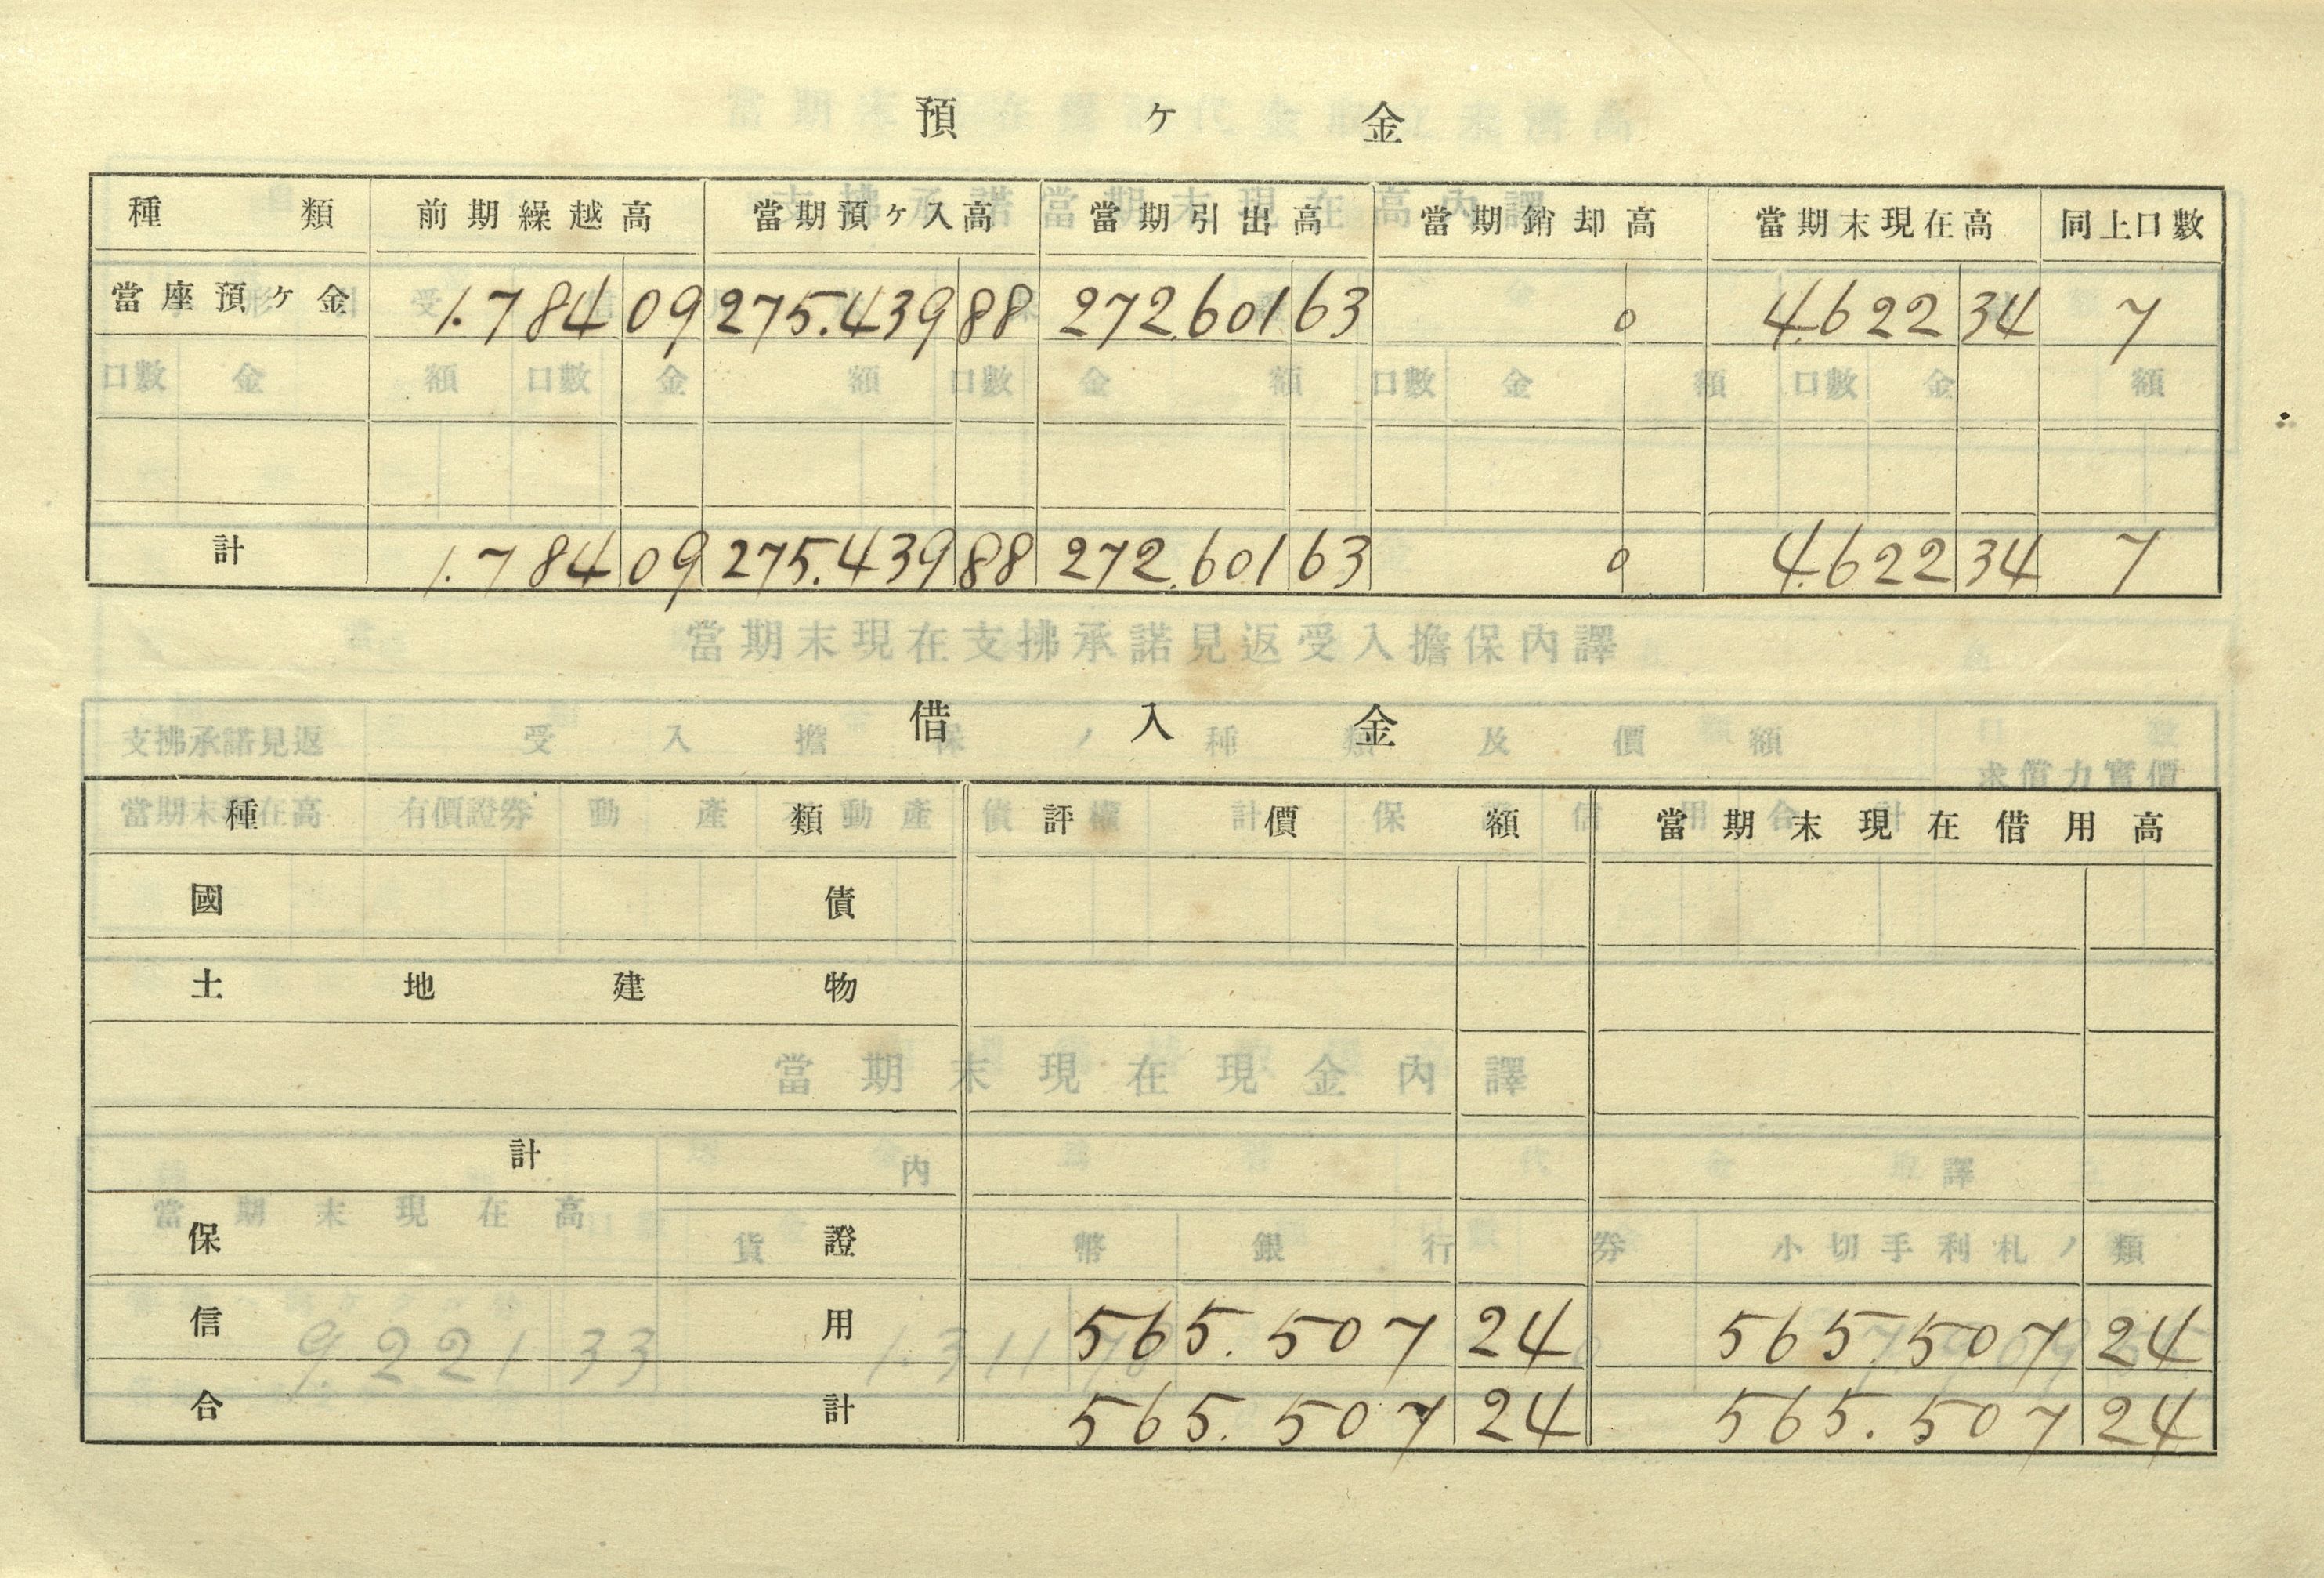 預ヶ金
種類 前期繰越高 當期預ヶ入高 當期引出高 當期銷却高 當期末現在高 同上口數
當座預ヶ金 1.784 09 275.439 88 272.601 63 0 4.622 34 7
計 1.784 09 275.439 88 272.601 63 0 4.622 34 7
借入金
種類 評價額 當期末現在借用高
國債
土地建物
計
保證
信用 565.507 24 565.507 24
合計 565.507 24 565.507 24